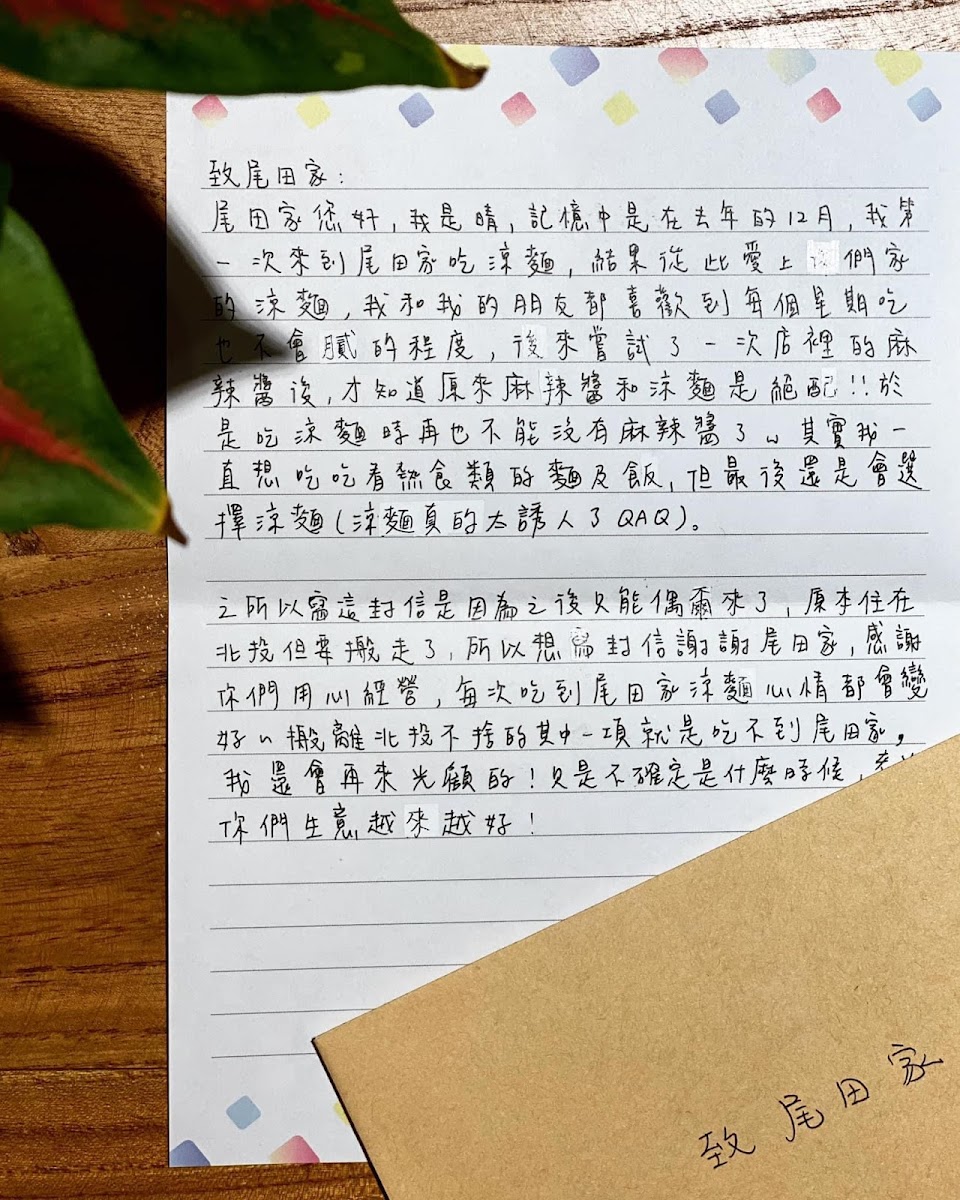 致尾田家：
尾田家您好，我是晴，記憶中是在去年的12月，我第
一次來到尾田家吃涼麵，結果從此愛上你們家
的涼麵，我和我的朋友都喜歡到每個星期吃
也不會膩的程度，後來嘗試了一次店裡的麻
辣醬後，才知道原來麻辣醬和涼麵是絕配!!於
是吃涼麵時再也不能沒有麻辣醬了～其實我一
直想吃吃看熱食類的麵及飯，但最後還是會選
擇涼麵(涼麵真的太誘人了QAQ)。
之所以寫這封信是因為之後只能偶爾來了，原本住在
北投但要搬走了，所以想寫封信謝謝尾田家，感謝
你們用心經營，每次吃到尾田家涼麵心情都會變
好～搬離北投不捨的其中一項就是吃不到尾田家，
我還會再來光顧的！只是不確定是什麼時候，
你們生意越來越好！
致尾田家